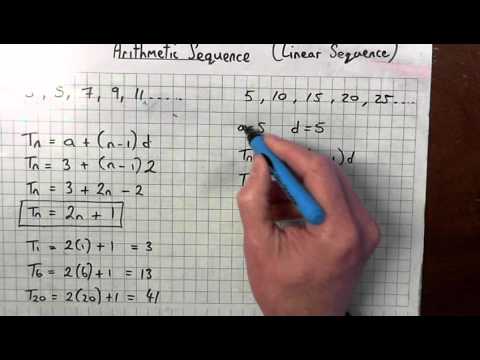 Arithmetic Sequence (Linear Sequence)
5, 7, 9, 11......
Tn = a + (n-1)d
Tn = 3 + (n-1)2
Tn = 3 + 2n - 2
Tn = 2n + 1
T1 = 2(1) + 1 = 3
T6 = 2(6) + 1 = 13
T20 = 2(20) + 1 = 41
5, 10, 15, 20, 25....
a=5 d=5
Tn -1)d
T